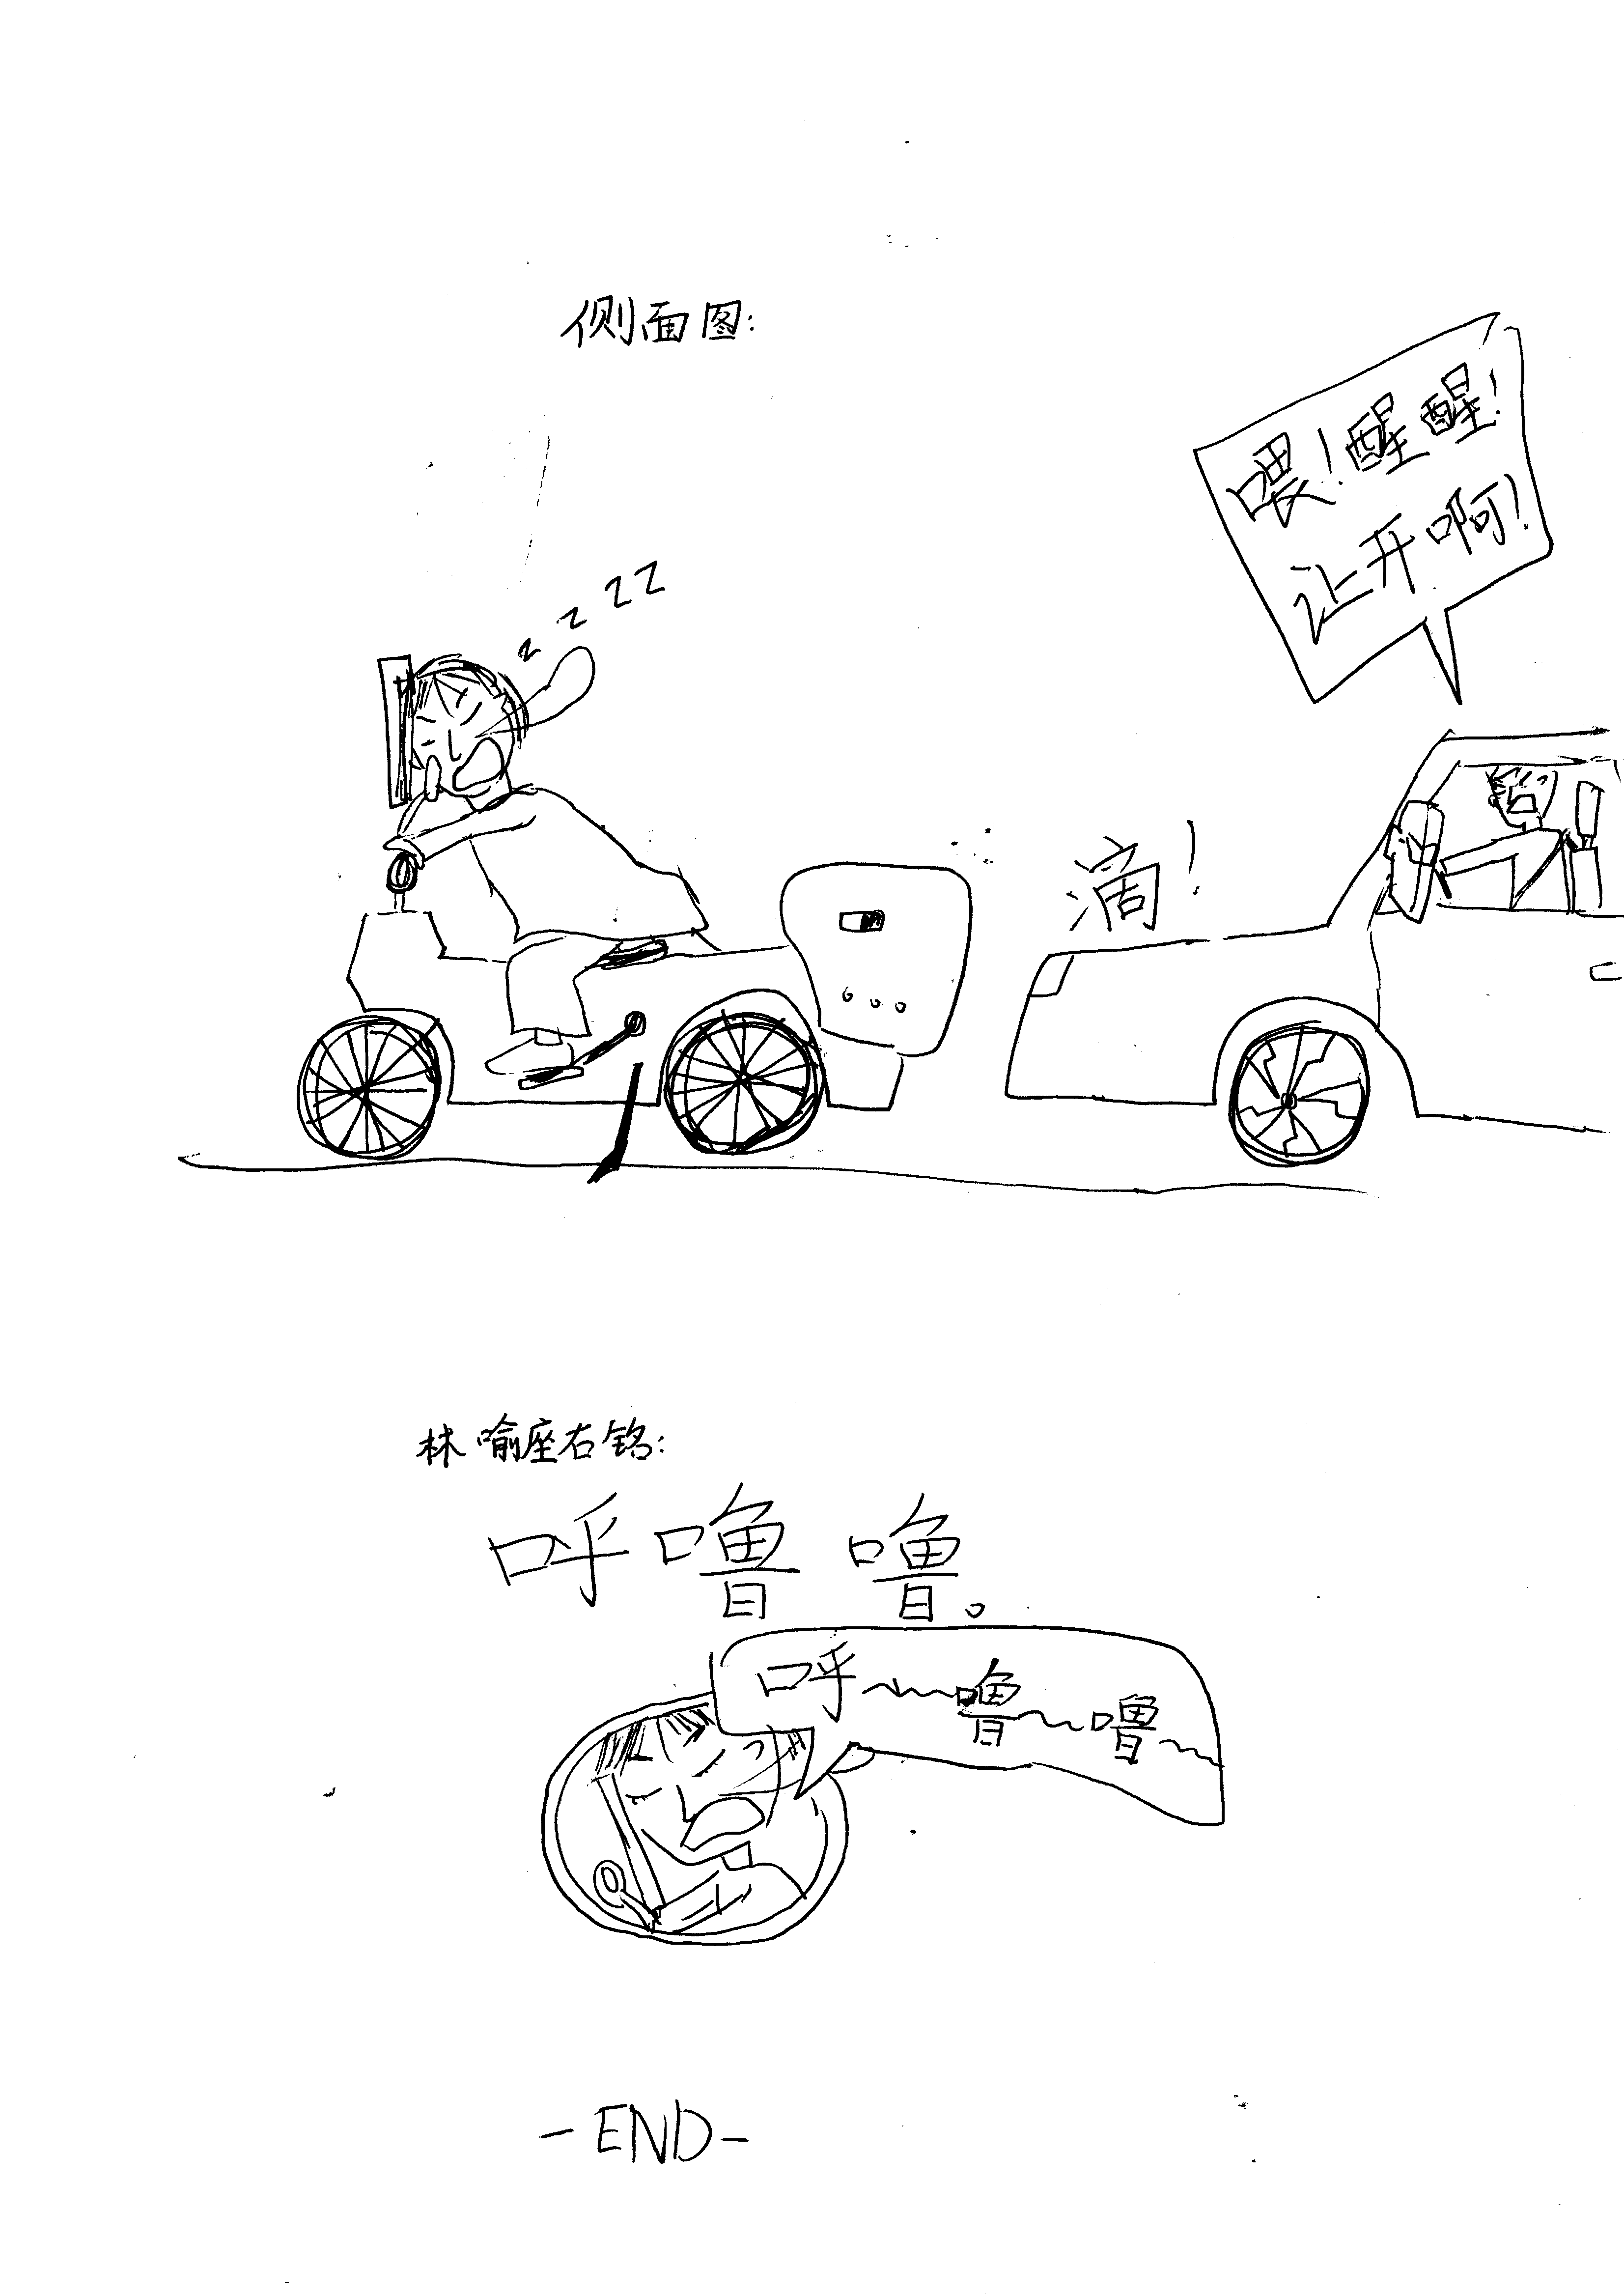 侧面图:
喂!醒醒!
让开啊!
z z z z
滴!
林喻座右铭:
呼噜噜。
呼~噜~噜~
-END-